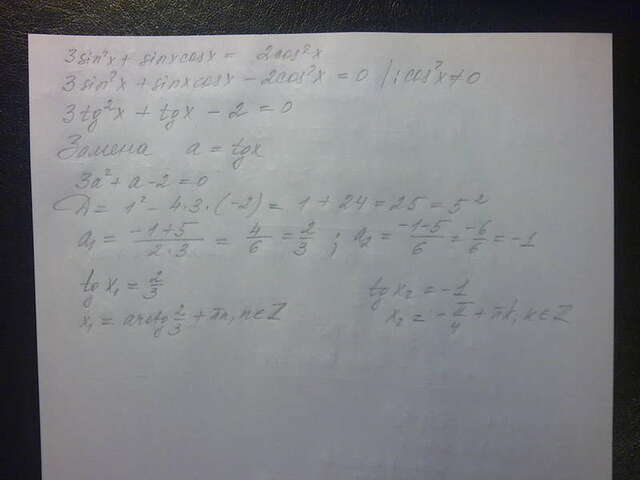 3sin²x + sinxcosx = 2cos²x
3sin²x + sinxcosx - 2cos²x = 0 | : cos²x ≠ 0
3tg²x + tgx - 2 = 0
Замена a = tgx
3a² + a - 2 = 0
D = 1² - 4·3·(-2) = 1 + 24 = 25 = 5²
a₁ = (-1+5)/(2·3) = 4/6 = 2/3 ; a₂ = (-1-5)/6 = -6/6 = -1
tg x₁ = 2/3 tg x₂ = -1
x₁ = arctg 2/3 + πn, n∈Z x₂ = -π/4 + πk, k∈Z